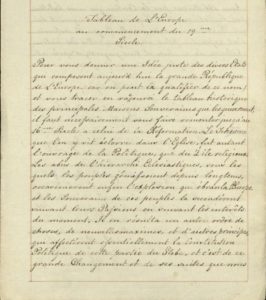 Tableau de L'Europe
au commencement du 19me
Siècle
Pour vous donner une Idée juste des divers Etats
qui composent aujourd'hui la grande République
de L'Europe car on peut la qualifier de ce nom
et vous tracer en raccourci le tableau historique
des principales Maisons Souveraines qui les gouvernent
il faut nécessairement vous faire remonter jusqu'au
16me Siècle a celui de la Réformation. Le Schisme
que l'on y vit éclater dans l'Eglise fut autant
l'ouvrage de la Politique, que du Zèle religieux
Les abus de l'hierarchie Ecclesiastiques, sous les
quels les peuples gémissoient depuis longtems,
occasionnèrent enfin l'explosion qui ébranla l'Europe
et les Souverains de ces peuples la secondèrent
suivant leurs Passions ou suivant les intérêts
du moment. Il en résulta un autre ordre de
choses, de nouvelles maximes, et d'autres principes
qui affectèrent essentiellement la Constitution
Politique de cette partie du Globe, et c'est de ce
grande Changement et de ses suites que nous